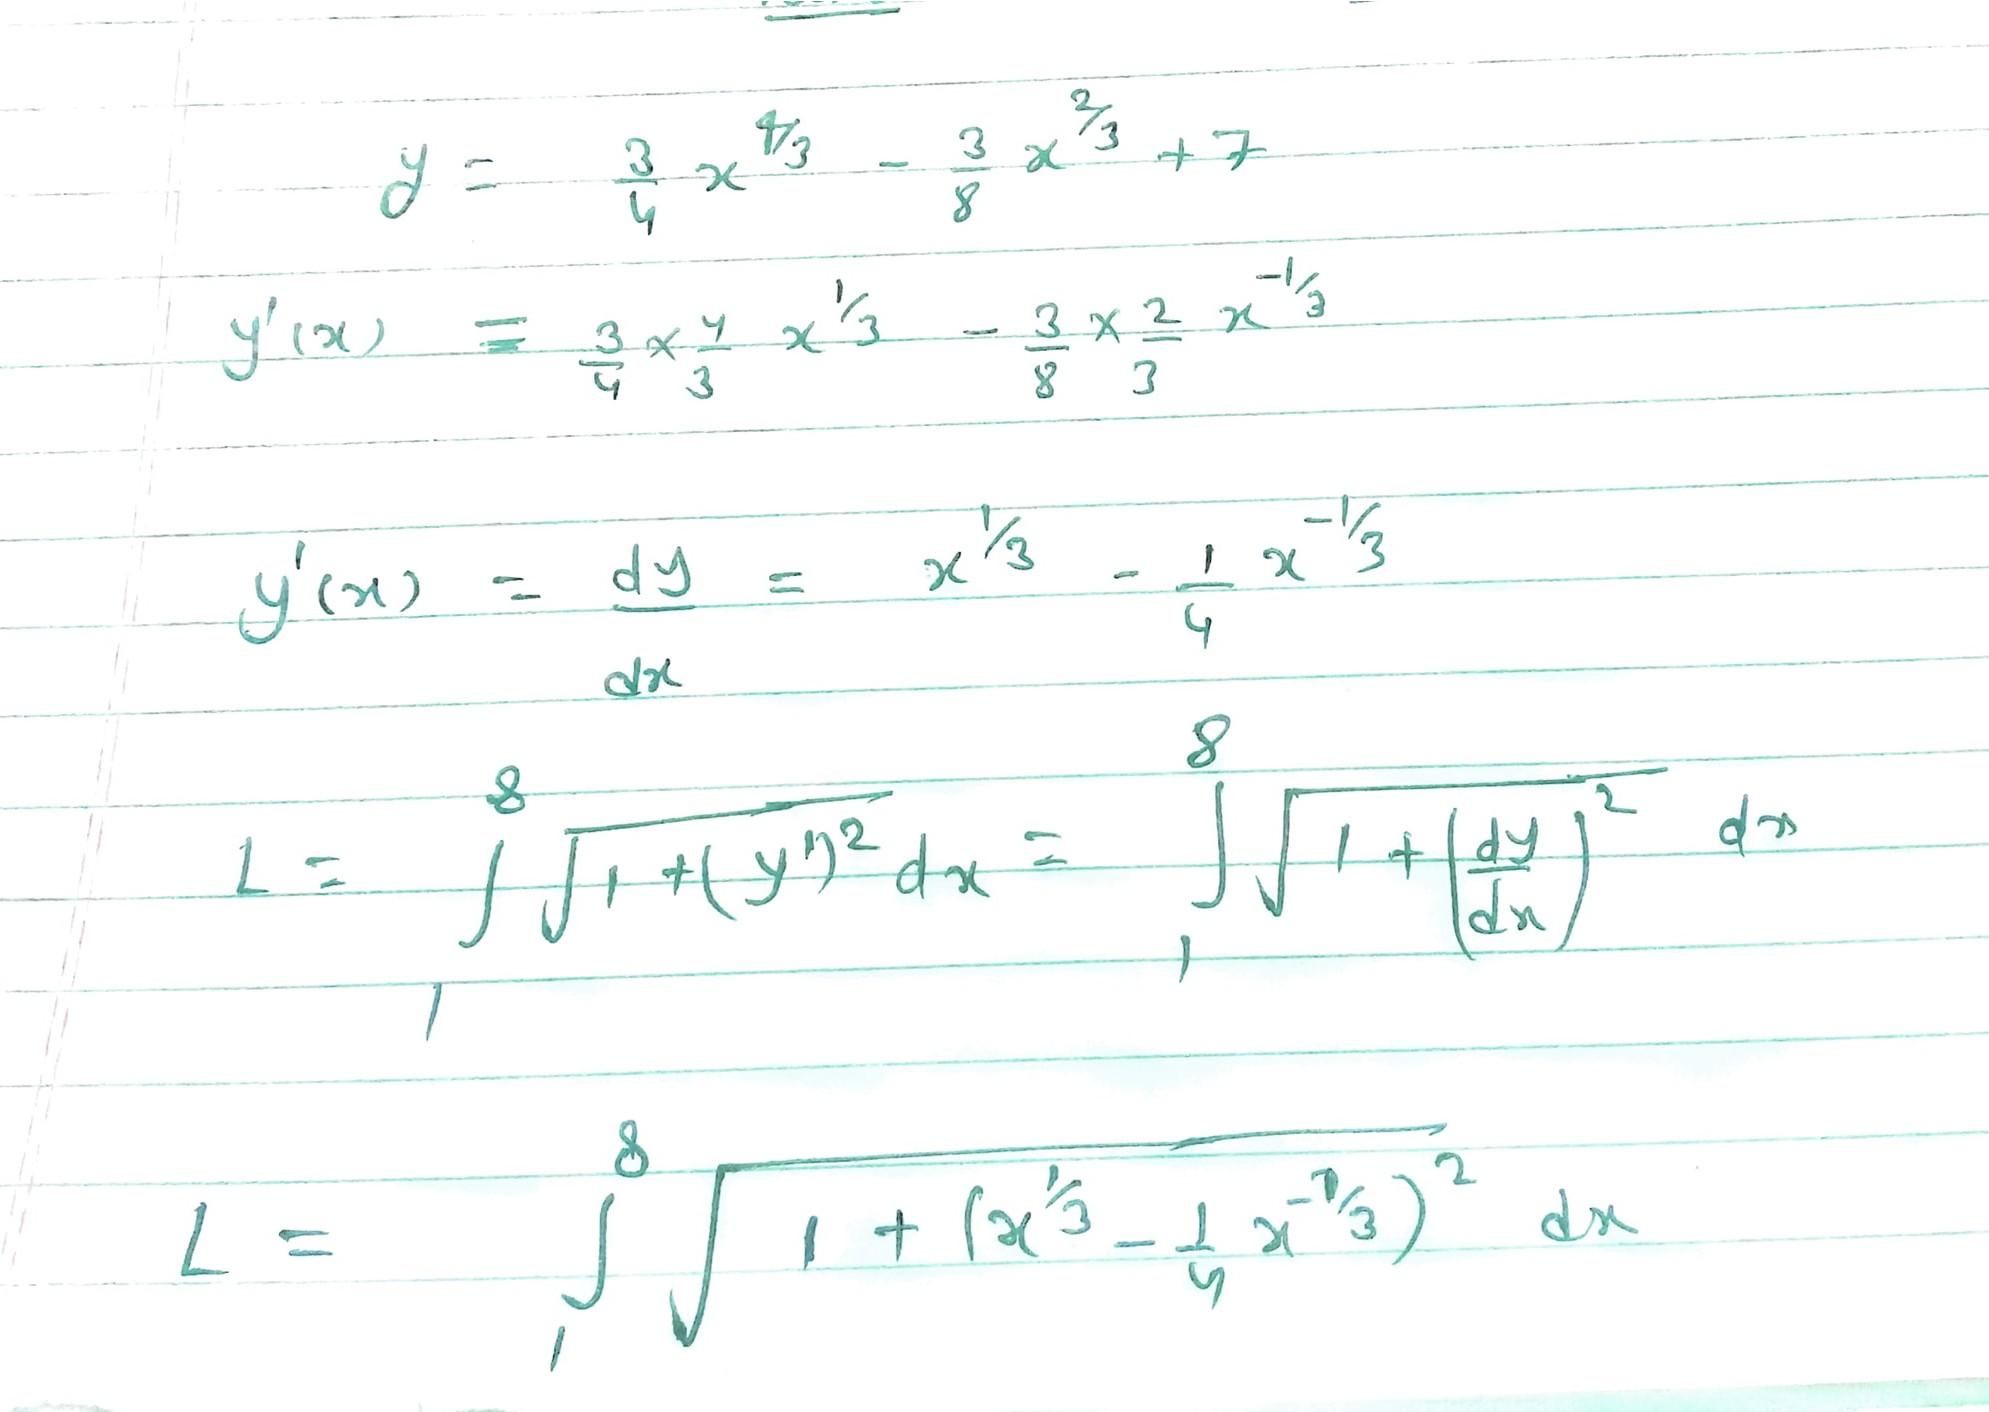 y = 3/4 x^4/3 - 3/8 x^2/3 + 7
y'(x) = 3/4 × 4/3 x^1/3 - 3/8 × 2/3 x^-1/3
y'(x) = dy/dx = x^1/3 - 1/4 x^-1/3
L = ∫_1^8 √(1 + (y')^2) dx = ∫_1^8 √(1 + (dy/dx)^2) dx
L = ∫_1^8 √(1 + (x^1/3 - 1/4 x^-1/3)^2) dx